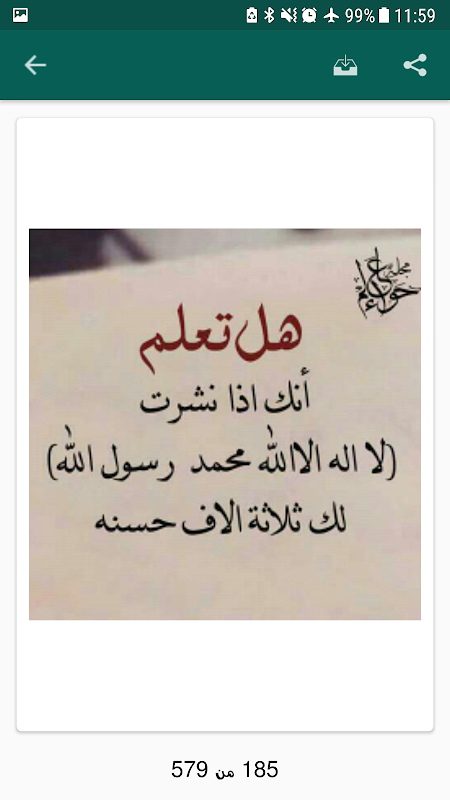 99% 11:59
مجلة حواء
هل تعلم
أنك اذا نشرت
(لا اله الا الله محمد رسول الله)
لك ثلاثة الاف حسنه
185 من 579